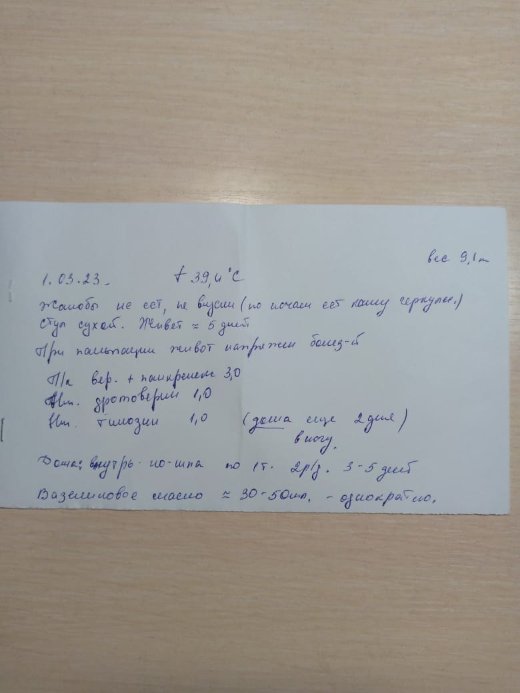 вес 9,1
1.03.23. t 39,4°C
Жалобы не ест, не вкусн (по ночам ест кашу геркулес.)
Стул сухой. Живет ≈ 5 дней
При пальпации живот напряжен болез-й
П/к вер. + панкреане 3,0
Вт. дротоверин 1,0
Вт. тилозин 1,0 (дома еще 2 дня)
в ногу.
Дома: внутрь - но-шпа по 1т. 2р/д. 3-5 дней
Вазелиновое масло ≈ 30-50мл. - однократно.